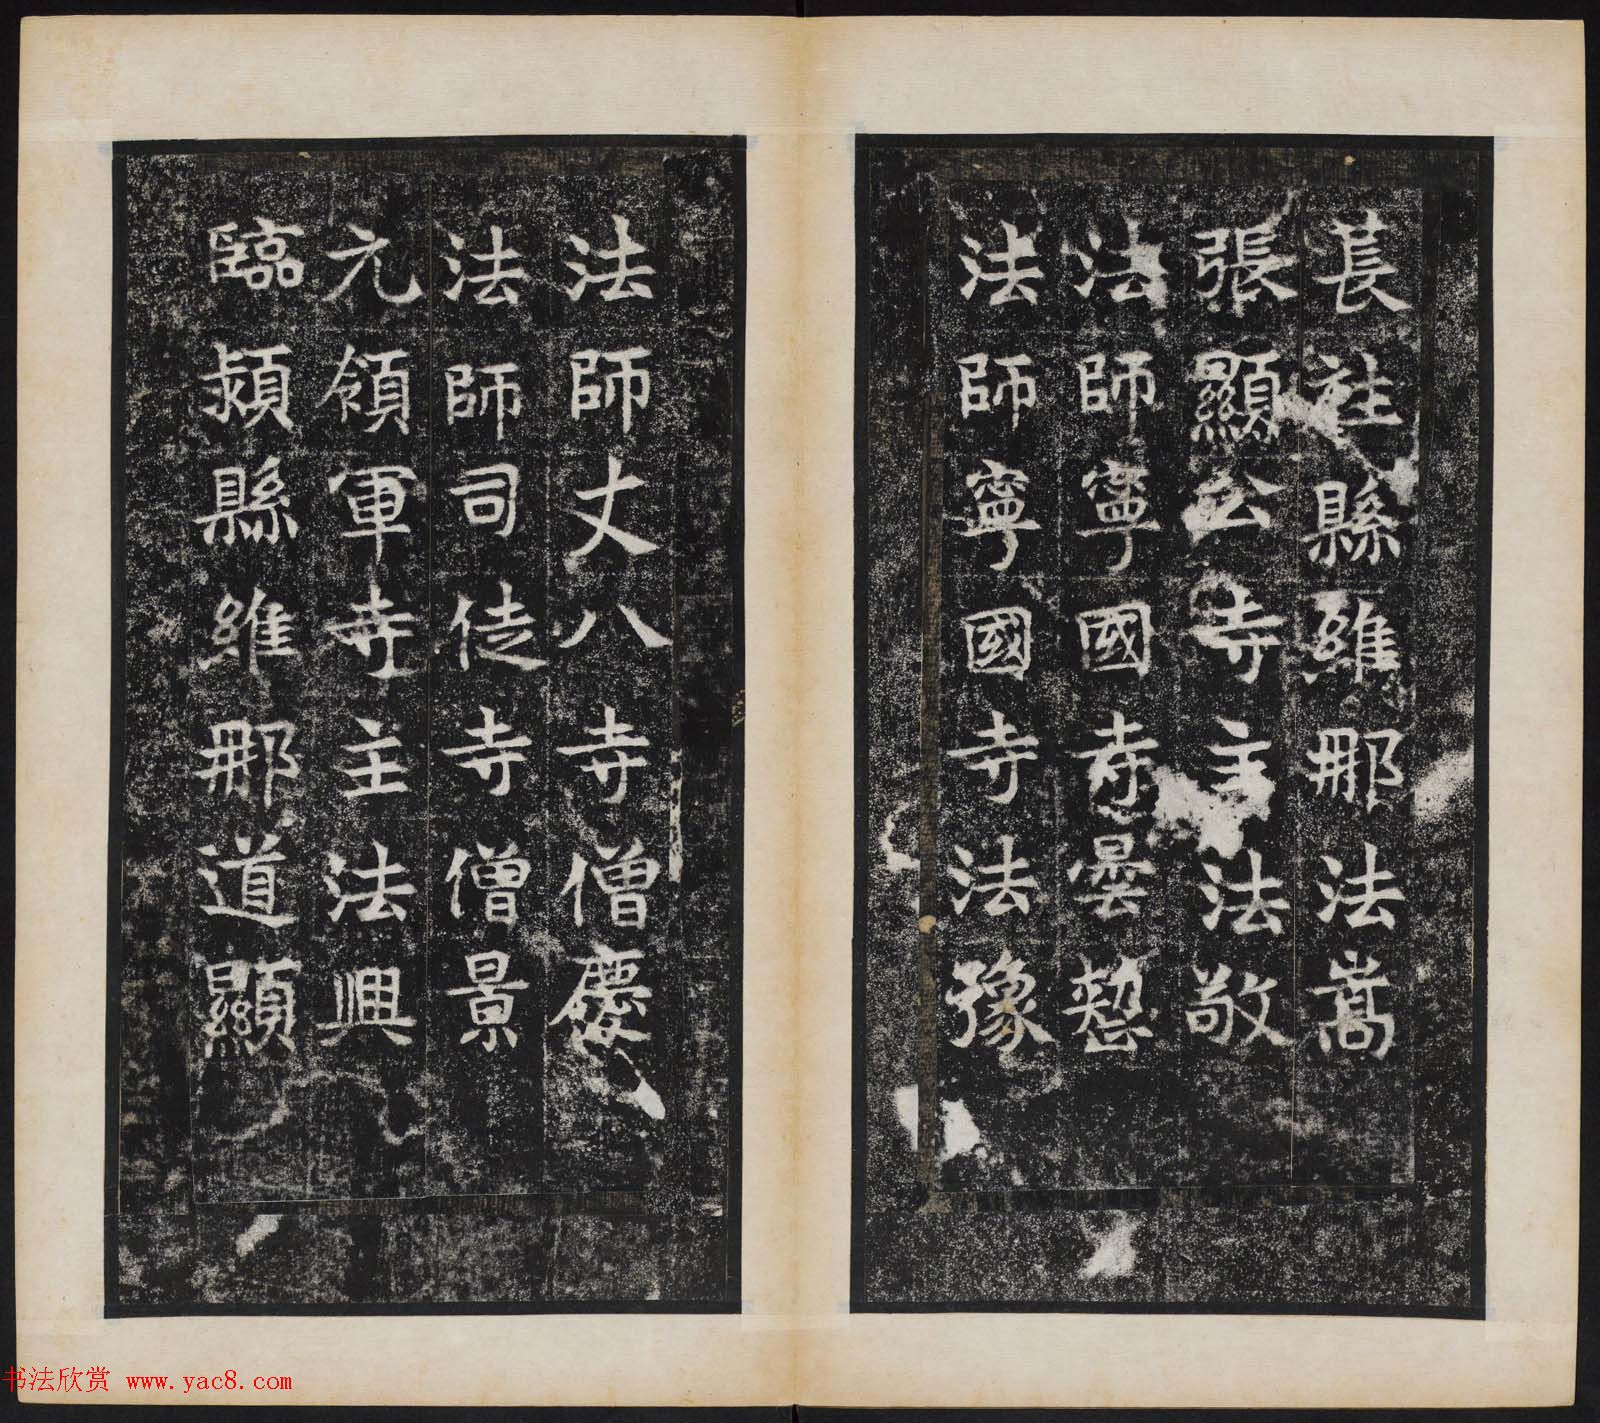 長社縣維那法嵩
張顯公寺主法敬
法師寧國寺曇
法師寧國寺法豫
法師丈八寺僧慶
法師司徒寺僧景
元領軍寺主法興
臨潁縣維那道顯
书法欣赏 www.yac8.com